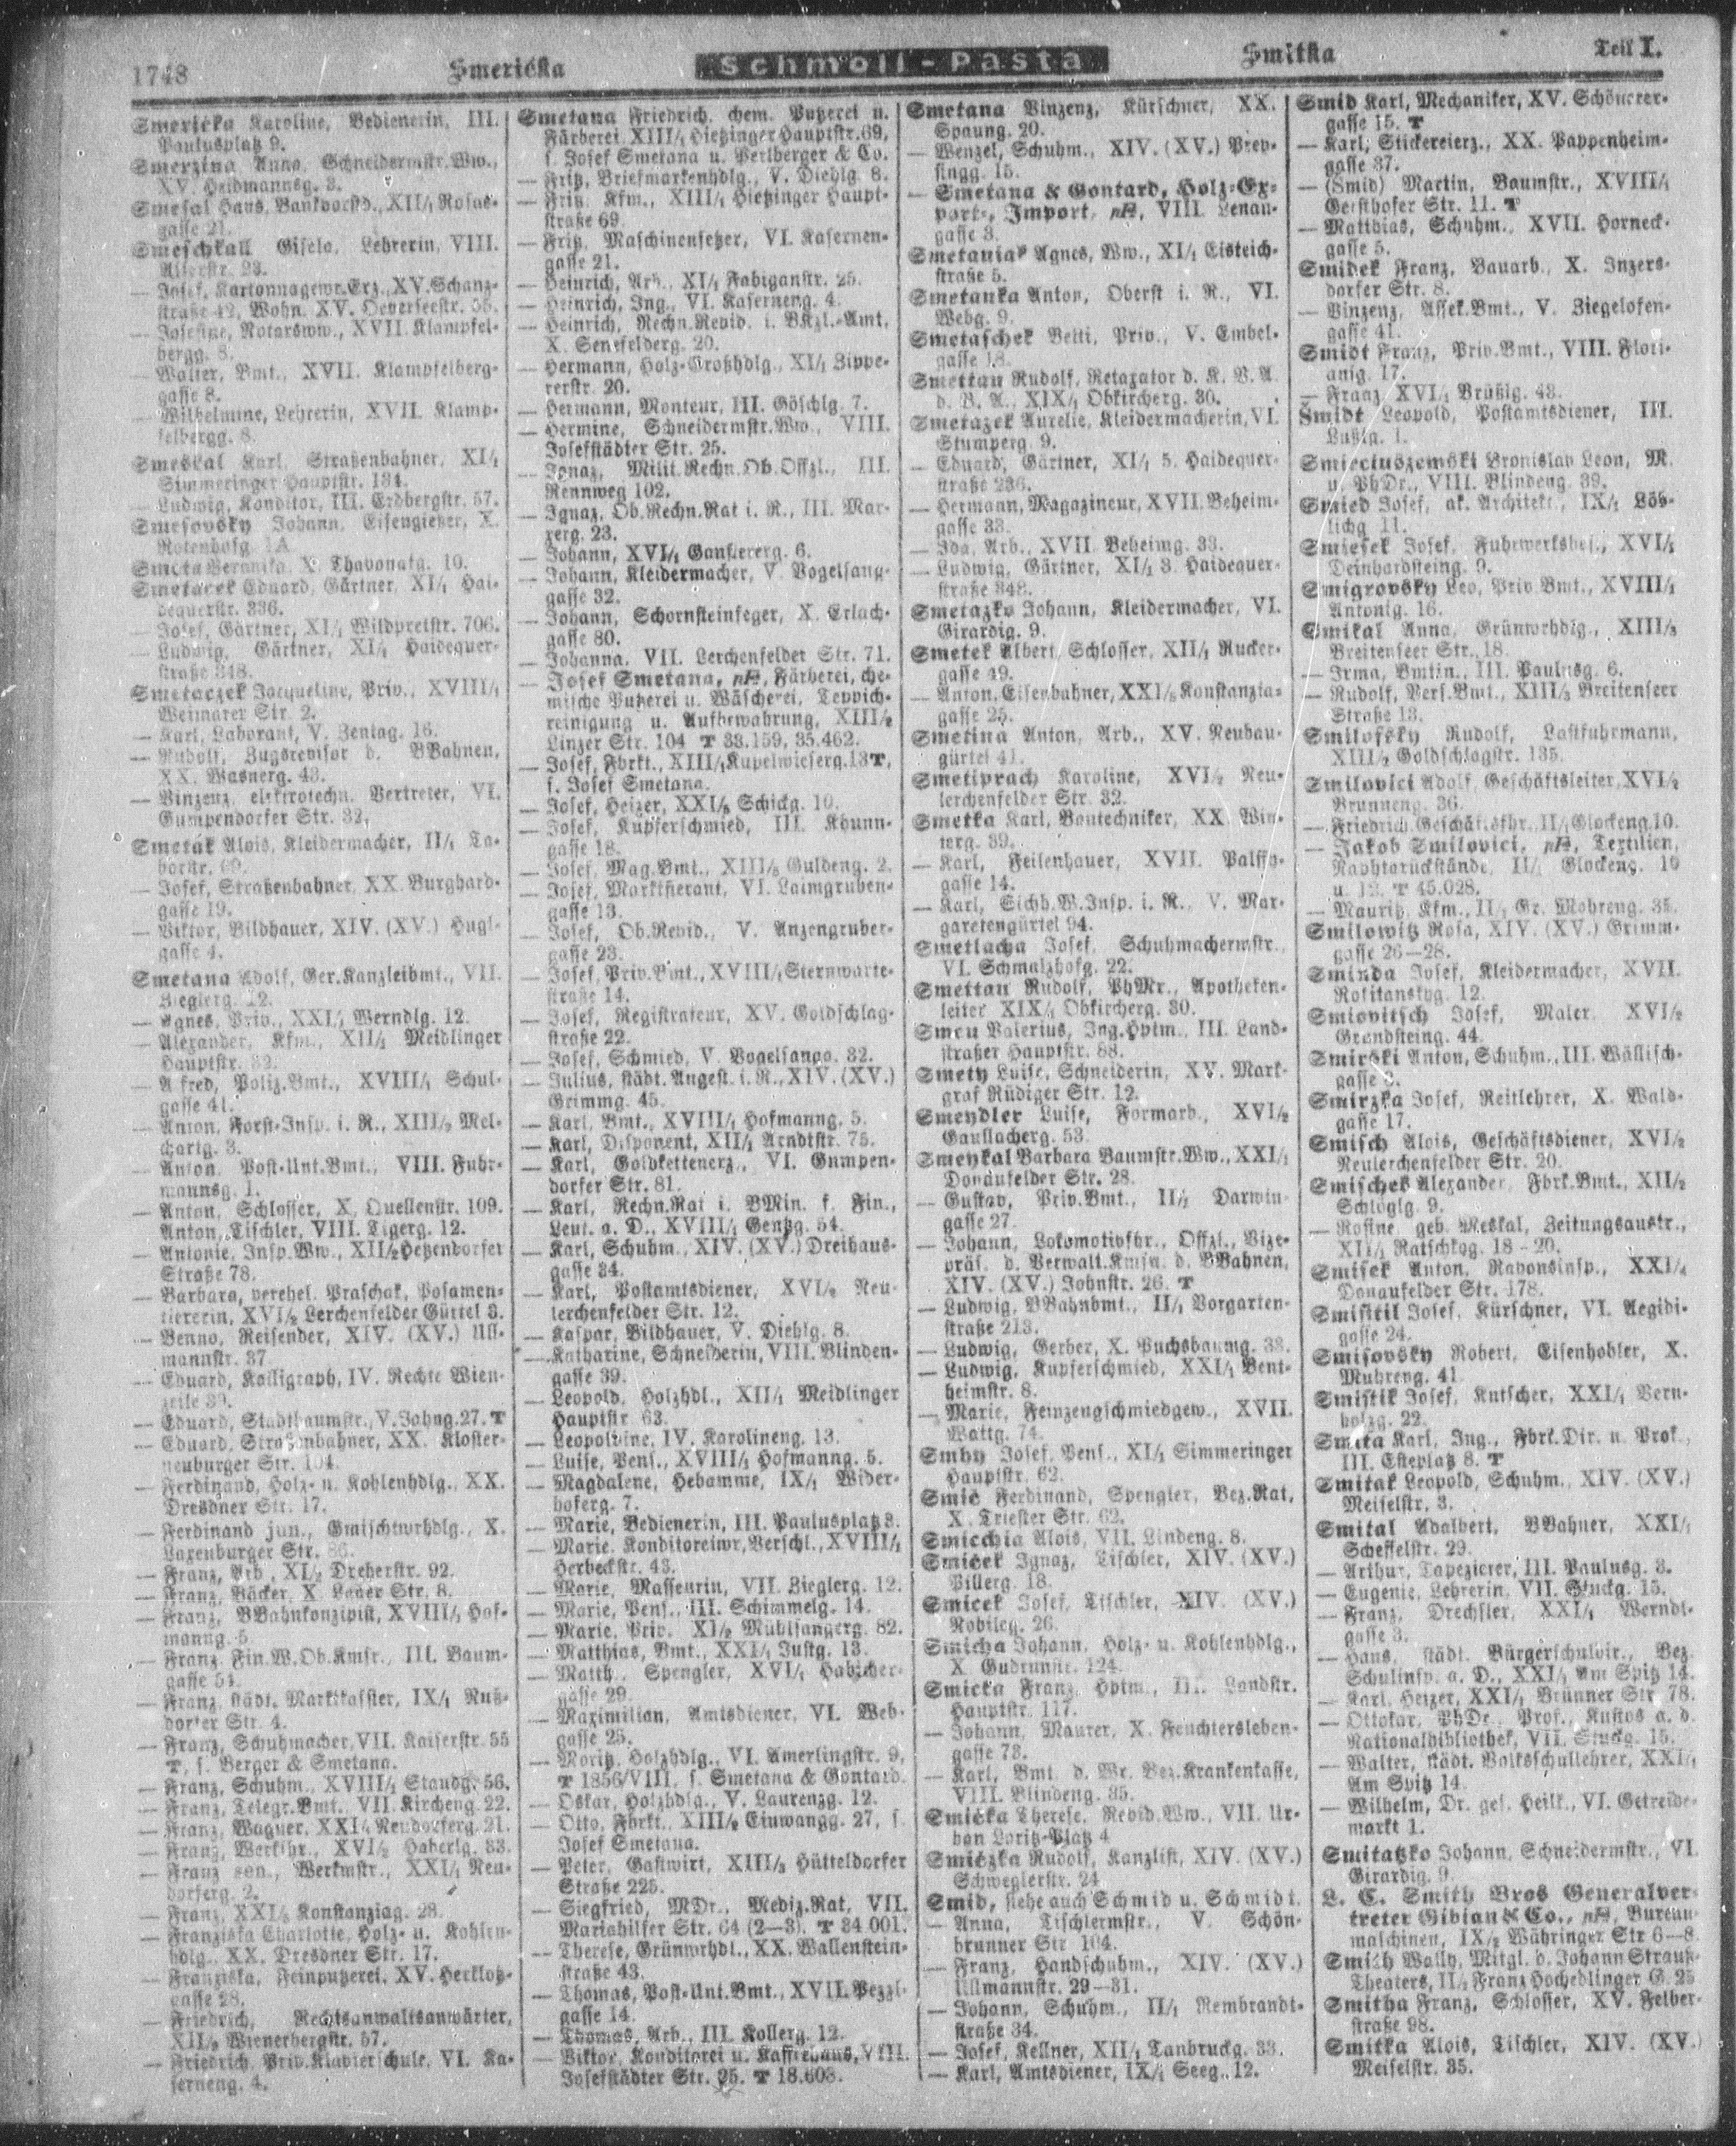 1748 Smericka Schmoll-Pasta Smitka Teil I.
Smericka Karoline, Bedienerin, III.
Paulusplatz 9.
Smerzina Anna, Schneidermstr.Ww.,
XV. Heidmannsg. 3.
Smesal Hans, Bankvorstd., XII/1 Rosas-
gasse 21.
Smeschkall Gisela, Lehrerin, VIII.
Alserstr. 23.
— Josef, Kartonnagewr.Erz., XV. Schanz-
straße 42, Wohn. XV. Oeverseestr. 55.
— Josefine, Notarsww., XVII. Klampfel-
bergg. 8.
— Walter, Bmt., XVII. Klampfelberg-
gasse 8.
— Wilhelmine, Lehrerin, XVII. Klamp-
felbergg. 8.
Smeskal Karl, Straßenbahner, XI/1
Simmeringer Hauptstr. 134.
— Ludwig, Konditor, III. Erdbergstr. 57.
Smesovsky Johann, Eisengießer, X.
Rotenhofg. 1A
Smeta Veronika, X. Thavonatg. 10.
Smetacek Eduard, Gärtner, XI/1 Hai-
dequerstr. 336.
— Josef, Gärtner, XI/1 Wildpretstr. 706.
— Ludwig, Gärtner, XI/1 Haidequer-
straße 348.
Smetaczek Jacqueline, Priv., XVIII/1
Weimarer Str. 2.
— Karl, Laborant, V. Zentag. 16.
— Rudolf, Zugsrevisor d. BBahnen,
XX. Wasnerg. 43.
— Vinzenz, elektrotechn. Vertreter, VI.
Gumpendorfer Str. 32.
Smeták Alois, Kleidermacher, II/1 Ta-
borstr.
— Josef, Straßenbahner, XX. Burghard-
gasse 19.
— Viktor, Bildhauer, XIV. (XV.) Hugl-
gasse 4.
Smetana Adolf, Ger.Kanzleibmt., VII.
Zieglerg. 12.
— Agnes, Priv., XXI/1 Werndlg. 12.
— Alexander, Kfm., XII/1 Meidlinger
Hauptstr.
— Alfred, Poliz.Bmt., XVIII/1 Schul-
gasse 41.
— Anton, Forst-Insp. i. R., XIII/2 Mel-
chartg. 3.
— Anton, Post-Unt.Bmt., VIII. Fuhr-
mannsg. 1.
— Anton, Schlosser, X. Quellenstr. 109.
Anton, Tischler, VIII. Tigerg. 12.
— Antonie, Insp.Ww., XII/2 Hetzendorfer
Straße 78.
— Barbara, verehel. Praschak, Posamen-
tiererin, XVI/2 Lerchenfelder Gürtel 3.
— Benno, Reisender, XIV. (XV.) Ull-
mannstr. 37
— Eduard, Kalligraph, IV. Rechte Wien-
zeile 39.
— Eduard, Stadtbaumstr., V. Johng. 27. T
— Eduard, Straßenbahner, XX. Kloster-
neuburger Str. 104.
— Ferdinand, Holz- u. Kohlenhdlg., XX.
Dresdner Str. 17.
— Ferdinand jun., Gmischtwrhdlg., X.
Laxenburger Str. 86.
— Franz, Arb., XI/2 Dreherstr. 92.
— Franz, Bäcker, X. Laaer Str. 8.
— Franz, BBahnkonzipist, XVIII/1 Hof-
manng. 5.
— Franz, Fin.W.Ob.Kmsr., III. Baum-
gasse 51.
— Franz, städt. Marktkassier, IX/1 Nuß-
dorfer Str. 4.
— Franz, Schuhmacher, VII. Kaiserstr. 55
T, s. Berger & Smetana.
— Franz, Schuhm., XVIII/1 Staudg. 56.
— Franz, Telegr.Bmt., VII. Kircheng. 22.
— Franz, Wagner, XXI/1 Neudorferg. 21.
— Franz, Werkfhr., XVI/2 Haberlg. 83.
— Franz sen., Werkmstr., XXI/1 Neu-
dorferg. 2.
— Franz, XXI/3 Konstanziag. 28.
— Franziska Charlotte, Holz- u. Kohlen-
hdlg., XX. Dresdner Str. 17.
— Franziska, Feinputzerei, XV. Herklotz-
gasse 28.
— Friedrich, Rechtsanwaltsanwärter,
XII/2 Wienerbergstr. 57.
— Friedrich, Priv.Klavierschule, VI. Ka-
serneng. 4.
Smetana Friedrich, chem. Putzerei u.
Färberei, XIII/1 Hietzinger Hauptstr. 69,
s. Josef Smetana u. Perlberger & Co.
— Fritz, Briefmarkenhdlg., V. Diehlg. 8.
— Fritz, Kfm., XIII/1 Hietzinger Haupt-
straße 69.
— Fritz, Maschinensetzer, VI. Kasernen-
gasse 21.
— Heinrich, Arb., XI/1 Fabiganstr. 25.
— Heinrich, Ing., VI. Kaserneng. 4.
— Heinrich, Rechn.Revid. i. BKzl.-Amt,
X. Senefelderg. 20.
— Hermann, Holz-Großhdlg., XI/1 Zippe-
rerstr. 20.
— Hermann, Monteur, III. Göschlg. 7.
— Hermine, Schneidermstr.Ww., VIII.
Josefstädter Str. 25.
— Ignaz, Milit.Rechn.Ob.Offzl., III.
Rennweg 102.
— Ignaz, Ob.Rechn.Rat i. R., III. Mar-
xerg. 23.
— Johann, XVI/1 Gansterерg. 6.
— Johann, Kleidermacher, V. Vogelsang-
gasse 32.
— Johann, Schornsteinfeger, X. Erlach-
gasse 80.
— Johanna, VII. Lerchenfelder Str. 71.
— Josef Smetana, pA, Färberei, che-
mische Putzerei u. Wäscherei, Teppich-
reinigung u. Aufbewahrung, XIII/2
Linzer Str. 104 T 33.159, 35.462.
— Josef, Fbrkt., XIII/1 Kupelwieserg. 13 T,
s. Josef Smetana.
— Josef, Heizer, XXI/3 Schickg. 10.
— Josef, Kupferschmied, III. Khunn-
gasse 18.
— Josef, Mag.Bmt., XIII/3 Guldeng. 2.
— Josef, Marktfierant, VI. Laimgruben-
gasse 13.
— Josef, Ob.Revid., V. Anzengruber-
gasse 23.
— Josef, Priv.Bmt., XVIII/1 Sternwarte-
straße 14.
— Josef, Registrateur, XV. Goldschlag-
straße 22.
— Josef, Schmied, V. Vogelsangg. 32.
— Julius, städt. Angest. i. R., XIV. (XV.)
Grimmg. 45.
— Karl, Bmt., XVIII/1 Hofmanng. 5.
— Karl, Disponent, XII/1 Arndtstr. 75.
— Karl, Goldkettenerz., VI. Gumpen-
dorfer Str. 81.
— Karl, Rechn.Rat i. BMin. f. Fin.,
Leut. a. D., XVIII/1 Gentzg. 54.
— Karl, Schuhm., XIV. (XV.) Dreihaus-
gasse 34.
— Karl, Postamtsdiener, XVI/2 Neu-
lerchenfelder Str. 12.
— Kaspar, Bildhauer, V. Diehlg. 8.
— Katharine, Schneiderin, VIII. Blinden-
gasse 39.
— Leopold, Holzhdl., XII/1 Meidlinger
Hauptstr. 63.
— Leopoldine, IV. Karolineng. 13.
— Luise, Pens., XVIII/1 Hofmanng. 5.
— Magdalene, Hebamme, IX/1 Wider-
hoferg. 7.
— Marie, Bedienerin, III. Paulusplatz 8.
— Marie, Konditoreiwr.Verschl., XVIII/1
Herbeckstr. 43.
— Marie, Masseurin, VII. Zieglerg. 12.
— Marie, Pens., III. Schimmelg. 14.
— Marie, Priv. XI/2 Mühlsangerg. 82.
— Matthias, Bmt., XXI/1 Justg. 13.
— Matth., Spengler, XVI/1 Habicher-
gasse 29.
— Maximilian, Amtsdiener, VI. Web-
gasse 25.
— Moritz, Holzhdlg., VI. Amerlingstr. 9,
T 1856/VIII, s. Smetana & Gontard.
— Oskar, Holzhdlg., V. Laurenzg. 12.
— Otto, Fbrkt., XIII/2 Einwangg. 27, s.
Josef Smetana.
— Peter, Gastwirt, XIII/3 Hütteldorfer
Straße 225.
— Siegfried, MDr., Mediz.Rat, VII.
Mariahilfer Str. 64 (2—3). T 34.001.
— Therese, Grünwrhdl., XX. Wallenstein-
straße 43.
— Thomas, Post-Unt.Bmt., XVII. Pezzl-
gasse 14.
— Thomas, Arb., III. Kollerg. 12.
— Viktor, Konditorei u. Kaffeehaus, VIII.
Josefstädter Str. 25. T 18.603.
Smetana Vinzenz, Kürschner, XX.
Spaung. 20.
— Wenzel, Schuhm., XIV. (XV.) Prey-
singg. 15.
— Smetana & Gontard, Holz-Ex-
port-, Import, pA, VIII. Lenau-
gasse 3.
Smetaniak Agnes, Ww., XI/1 Eisteich-
straße 5.
Smetanka Anton, Oberst i. R., VI.
Webg. 9.
Smetaschek Betti, Priv., V. Embel-
gasse 18.
Smettan Rudolf, Retaxator d. K. V. A.
d. B. A., XIX/1 Obkircherg. 30.
Smetazek Aurelie, Kleidermacherin, VI.
Stumperg. 9.
— Eduard, Gärtner, XI/1 5. Haidequer-
straße 236.
— Hermann, Magazineur, XVII. Beheim-
gasse 33.
— Ida, Arb., XVII. Beheimg. 33.
— Ludwig, Gärtner, XI/1 3. Haidequer-
straße 348.
Smetazko Johann, Kleidermacher, VI.
Girardig. 9.
Smetek Albert, Schlosser, XII/1 Rucker-
gasse 49.
— Anton, Eisenbahner, XXI/3 Konstanzia-
gasse 25.
Smetina Anton, Arb., XV. Neubau-
gürtel 41.
Smetiprach Karoline, XVI/2 Neu-
lerchenfelder Str. 32.
Smetka Karl, Bautechniker, XX. Win-
terg. 39.
— Karl, Feilenhauer, XVII. Palffy-
gasse 14.
— Karl, Sichh.W.Insp. i. R., V. Mar-
garetengürtel 94.
Smetlacha Josef, Schuhmachermstr.,
VI. Schmalzhofg. 22.
Smettan Rudolf, PhMr., Apotheken-
leiter XIX/1 Obkircherg. 30.
Smeu Valerius, Ing.Hptm., III. Land-
straßer Hauptstr. 88.
Smety Luise, Schneiderin, XV. Mark-
graf Rüdiger Str. 12.
Smeydler Luise, Formarb., XVI/2
Gaullacherg. 53.
Smeykal Barbara Baumstr.Ww., XXI/1
Donaufelder Str. 28.
— Gustav, Priv.Bmt., II/2 Darwin-
gasse 27.
— Johann, Lokomotivfhr., Offzl., Vize-
präs. d. Verwalt.Kmsn. d. BBahnen,
XIV. (XV.) Johnstr. 26. T
— Ludwig, BBahnbmt., II/1 Vorgarten-
straße 213.
— Ludwig, Gerber, X. Puchsbaumg. 33.
— Ludwig, Kupferschmied, XXI/1 Bent-
heimstr. 8.
— Marie, Feinzeugschmiedgew., XVII.
Wattg. 74.
Smhy Josef, Pens., XI/1 Simmeringer
Hauptstr. 62.
Smic Ferdinand, Spengler, Bez.Rat,
X. Triester Str. 62.
Smicchia Alois, VII. Lindeng. 8.
Smicek Ignaz, Tischler, XIV. (XV.)
Pillerg. 18.
Smicek Josef, Tischler, XIV. (XV.)
Nobileg. 26.
Smicha Johann, Holz- u. Kohlenhdlg.,
X. Gudrunstr. 124.
Smicka Franz, Hptm., III. Landstr.
Hauptstr. 117.
— Johann, Maurer, X. Feuchtersleben-
gasse 73.
— Karl, Bmt. d. Wr. Bez.Krankenkasse,
VIII. Blindeng. 35.
Smicka Therese, Revid.Ww., VII. Ur-
ban Loritz-Platz 4
Smiczka Rudolf, Kanzlist, XIV. (XV.)
Schweglerstr. 24
Smid, siehe auch Schmid u. Schmidt.
— Anna, Tischlermstr., V. Schön-
brunner Str. 104.
— Franz, Handschuhm., XIV. (XV.)
Ullmannstr. 29—31.
— Johann, Schuhm., II/1 Rembrandt-
straße 34.
— Josef, Kellner, XII/1 Tanbruckg. 33.
— Karl, Amtsdiener, IX/1 Seeg. 12.
Smid Karl, Mechaniker, XV. Schönerer-
gasse 15. T
— Karl, Stickereierz., XX. Pappenheim-
gasse 37.
— (Smid) Martin, Baumstr., XVIII/1
Gersthofer Str. 11. T
— Matthias, Schuhm., XVII. Horneck-
gasse 5.
Smidek Franz, Bauarb., X. Inzers-
dorfer Str. 8.
— Vinzenz, Assek.Bmt., V. Ziegelofen-
gasse 41.
Smidt Franz, Priv.Bmt., VIII. Flori-
anig. 17.
— Franz, XVI/1 Brüßlg. 43.
Smidt Leopold, Postamtsdiener, III.
Lußtg. 1.
Smieciuszewski Bronislav Leon, M.
u. PhDr., VIII. Blindeng. 39.
Smied Josef, ak. Architekt, IX/1 Löb-
lichg. 11.
Smiesek Josef, Fuhrwerksbes., XVI/1
Deinhardsteing. 9.
Smigrovsky Leo, Priv.Bmt., XVIII/1
Antonig. 16.
Smikal Anna, Grünwrhdlg., XIII/3
Breitenseer Str. 18.
— Irma, Bmtin., III. Paulusg. 6.
— Rudolf, Vers.Bmt., XIII/3 Breitenseer
Straße 13.
Smilofsky Rudolf, Lastfuhrmann,
XIII/2 Goldschlagstr. 135.
Smilovici Adolf, Geschäftsleiter, XVI/2
Brunneng. 36.
— Friedrich, Geschäftsfhr., II/1 Glockeng. 10.
— Jakob Smilovici, pA, Textilien,
Naphtarückstände, II/1 Glockeng. 10
u. 12. T 45.028.
— Mauritz, Kfm., II/1 Gr. Mohreng. 35.
Smilowitz Rosa, XIV. (XV.) Grimm-
gasse 26—28.
Sminda Josef, Kleidermacher, XVII.
Rokitanskyg. 12.
Smiovitsch Josef, Maler, XVI/2
Grundsteing. 44.
Smirski Anton, Schuhm., III. Wällisch-
gasse 3.
Smirzka Josef, Reitlehrer, X. Wald-
gasse 17.
Smisch Alois, Geschäftsdiener, XVI/2
Neulerchenfelder Str. 20.
Smischek Alexander, Fbrk.Bmt., XII/2
Schlöglg. 9.
— Rosine, geb. Meskal, Zeitungsaustr.,
XII/1 Ratschkyg. 18-20.
Smisek Anton, Rayonsinsp., XXI/4
Donaufelder Str. 178.
Smisitil Josef, Kürschner, VI. Aegidi-
gasse 24.
Smisovsky Robert, Eisenhobler, X.
Muhreng. 41
Smistik Josef, Kutscher, XXI/1 Bern-
holzg. 22.
Smita Karl, Ing., Fbrk.Dir. u. Prok.,
III. Esteplatz 8. T
Smitak Leopold, Schuhm., XIV. (XV.)
Meiselstr. 3.
Smital Adalbert, BBahner, XXI/1
Scheffelstr. 29.
— Arthur, Tapezierer, III. Paulusg. 3.
— Eugenie, Lehrerin, VII. Stuckg. 15.
— Franz, Drechsler, XXI/1 Werndl-
gasse 3.
— Hans, städt. Bürgerschuldir., Bez.
Schulinsp. a. D., XXI/1 Am Spitz 14.
— Karl, Heizer, XXI/1 Brünner Str. 78.
— Ottokar, PhDr., Prof., Kustos a. d.
Nationalbibliothek, VII. Stuckg. 15.
— Walter, städt. Volksschullehrer, XXI/1
Am Spitz 14.
— Wilhelm, Dr. ges. Heilk., VI. Getreide-
markt 1.
Smitatzko Johann, Schneidermstr., VI.
Girardig. 9.
L. C. Smith Bros Generalver-
treter Gibian & Co., pA, Bureau-
maschinen, IX/2 Währinger Str 6—8
Smith Wally, Mitgl. d. Johann Strauß-
Theaters, II/2 Franz Hochedlinger G. 25
Smitha Franz, Schlosser, XV. Felber-
straße 98.
Smitka Alois, Tischler, XIV. (XV.)
Meiselstr. 35.